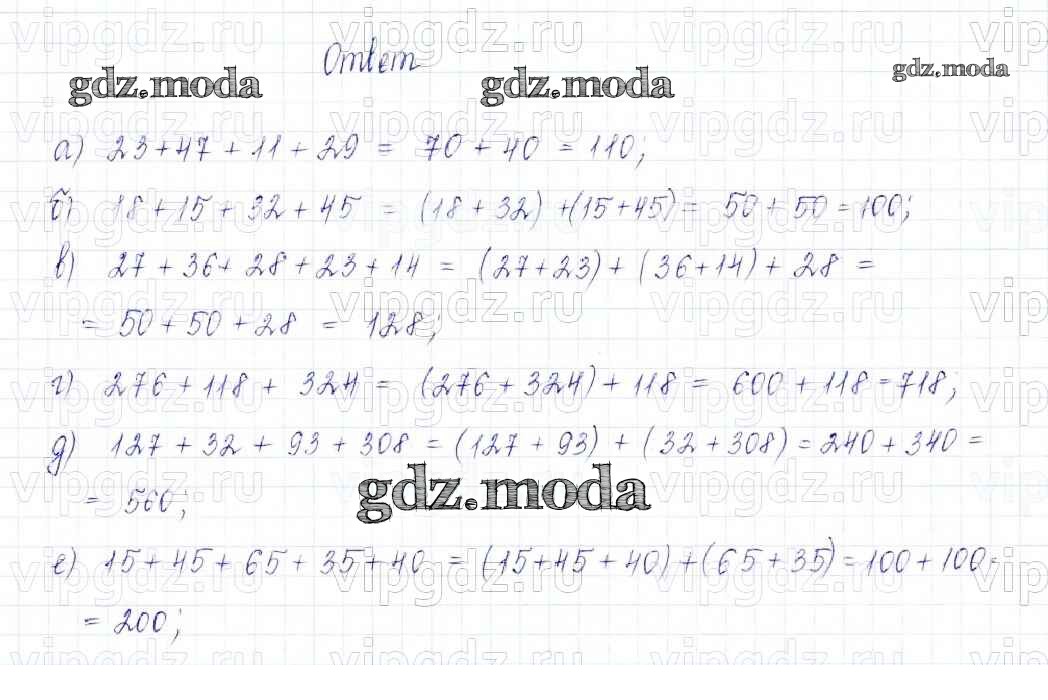 Ответ
gdz.moda gdz.moda gdz.moda
а) 23+47 + 11 + 29 = 70 + 40 = 110;
б) 18 + 15 + 32 + 45 = (18 + 32) + (15+45) = 50 + 50 = 100;
в) 27 + 36 + 28 + 23 + 14 = (27+23) + (36+14) + 28 =
= 50 + 50 + 28 = 128;
г) 276 + 118 + 324 = (276 + 324) + 118 = 600 + 118 = 718;
д) 127 + 32 + 93 + 308 = (127 + 93) + (32 + 308) = 240 + 340 =
= 560;
gdz.moda
е) 15 + 45 + 65 + 35 + 40 = (15+45 + 40) + (65 + 35) = 100 + 100 =
= 200;